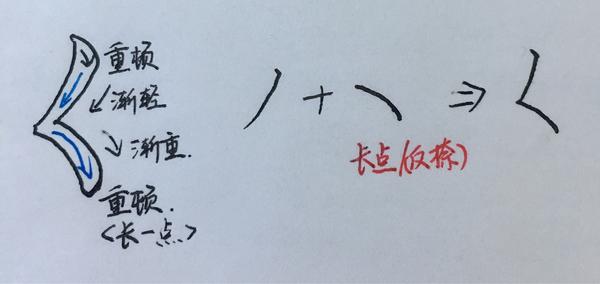 重顿
渐轻
渐重.
重顿.
<长一点>
丿 + ㇏ ⇒ ㄑ
长点(反捺)